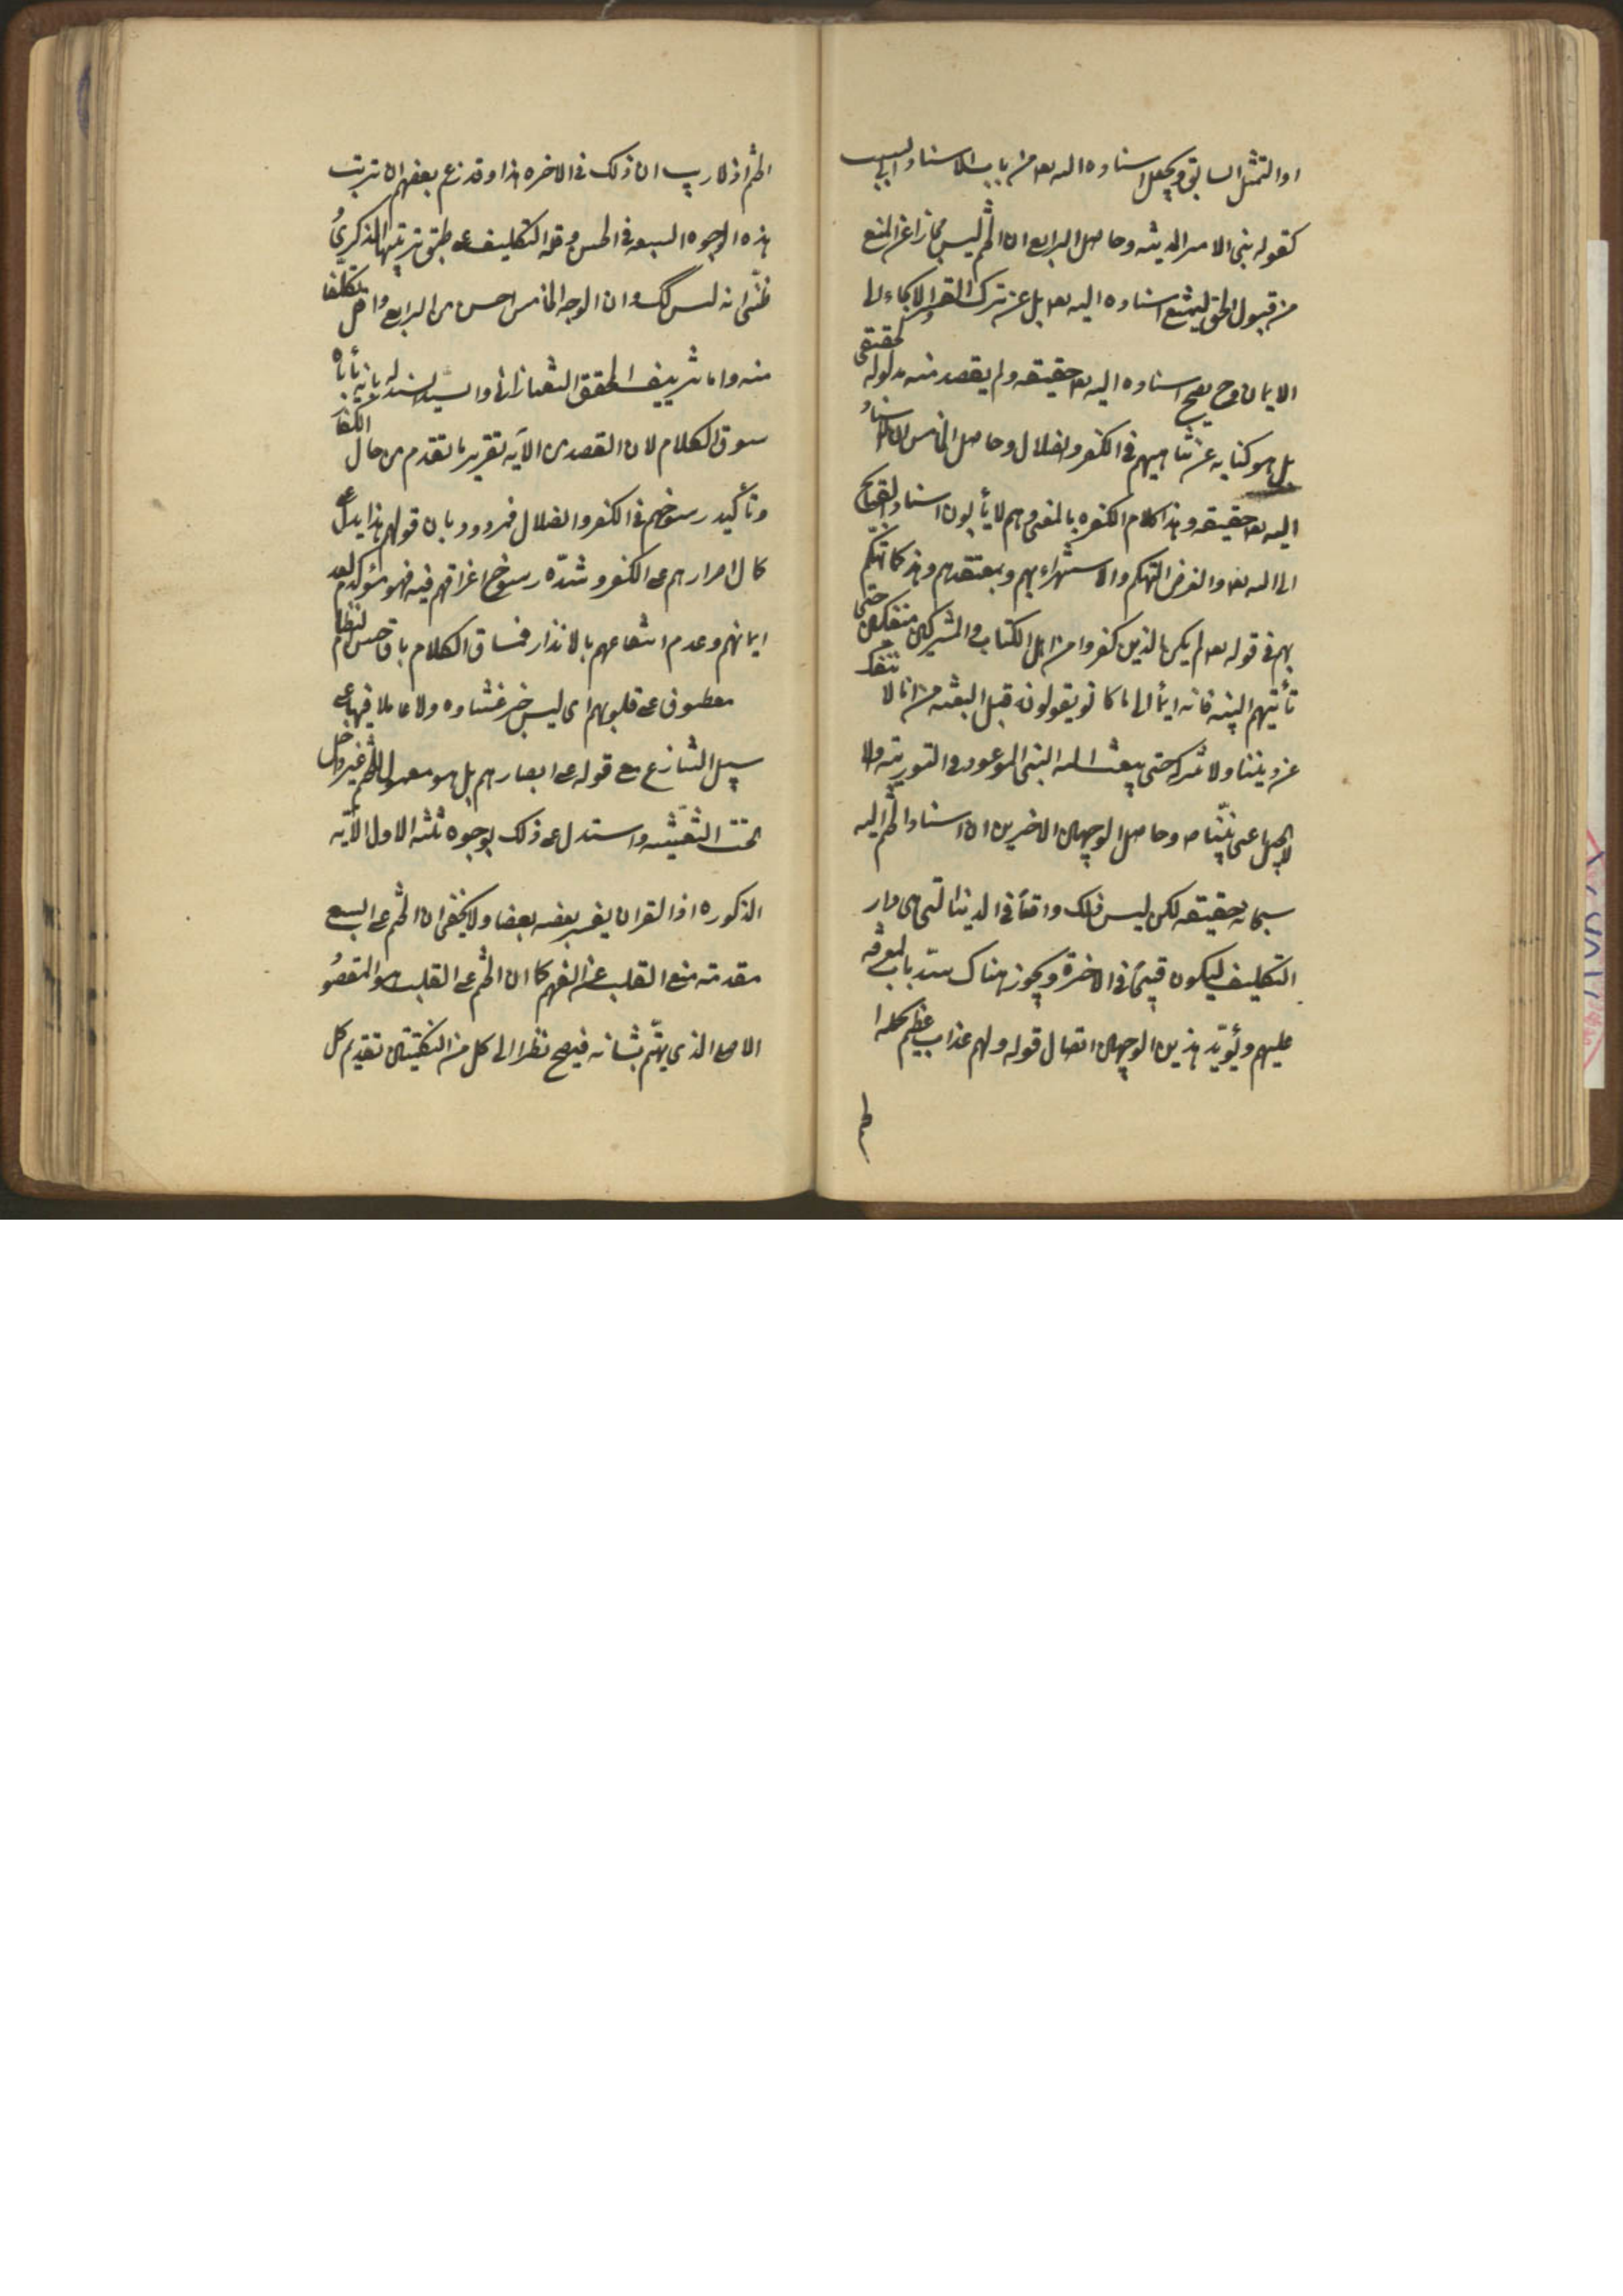 او التمثيل السابق ويجعل اسناده اليه تعه من باب الاسناد الى السبب
كقوله بنى الامير المدينه وحاصل الرابع ان الختم ليس مجازا عن المنع
من قبول الحق ليمتنع اسناده اليه تعه بل عن ترك القسر والالجاء الى
الايمان وح يصح اسناده اليه تعه حقيقه ولم يقصد منه مدلوله الحقيقى
بل هو كنايه عن تناهيهم فى الكفر والضلال وحاصل الخامس ان الاسناد
اليه تعه حقيقه وهذا كلام الكفره بالمعنى وهم لا يأبون اسناد القبايح
الى الله تعه والغرض التهكم والاستهزاء بهم وبمعتقدهم وهذا كالتهكم
بهم فى قوله تعه لم يكن الذين كفروا من اهل الكتاب والمشركين منفكين حتى
تأتيهم البينه فانه ايماء الى ما كانوا يقولون قبل البعثه من انا لا ننفك
عن ديننا ولا نتركه حتى يبعث الله النبى الموعود فى التوريته والا
لانجيل على نبينا ص وحاصل الوجهين الاخيرين ان اسناد الختم اليه
سبحانه حقيقه لكن ليس ذلك واقعا فى الدنيا التى هى دار
التكليف ليكون قبيحا فى الاخرة ويجوز هناك سد باب المعرفه
عليهم ويؤيد هذين الوجهين اتصال قوله ولهم عذاب عظيم بحكمه
الختم اذ لا ريب ان ذلك فى الاخره هذا وقد زعم بعضهم ان ترتب
هذه الوجوه السبعه فى الحسن وقله التكليف على طبق ترتيبها الذكرى
ظنى انه ليس كك وان الوجه الخامس احسن من الرابع واقل تكلفا
منه واما تزييف المحقق التفتازانى والسيد السند له بانه يأباه
سوق الكلام لان القصد من الآيه تقرير ما تقدم من حال الكفار
وتأكيد رسوخهم فى الكفر والضلال فمردود بان قولهم هذا يدل على
كمال اصرارهم على الكفر وشدة رسوخ اغراقهم فيه فهو مؤكد لعدم
ايمانهم وعدم انتفاعهم بالانذار فمساق الكلام باق حسن النظام
معطوف على قلوبهم اى ليس خبر غشاوه ولا عاملا فيها على
سبيل التنازع مع قوله على ابصارهم بل هو معمول للختم غير داخل
تحت التغشيه واستدل على ذلك بوجوه ثلثه الاول الآيه
المذكوره اذ القران يفسر بعضه بعضا ولا يخفى ان الختم على السمع
مقدمته منع القلب عن الفهم كما ان الختم على القلب هو المقصود
الاصلى الذى يهتم بشانه فيصح نظرا الى كل من النكتتين تقديم كل